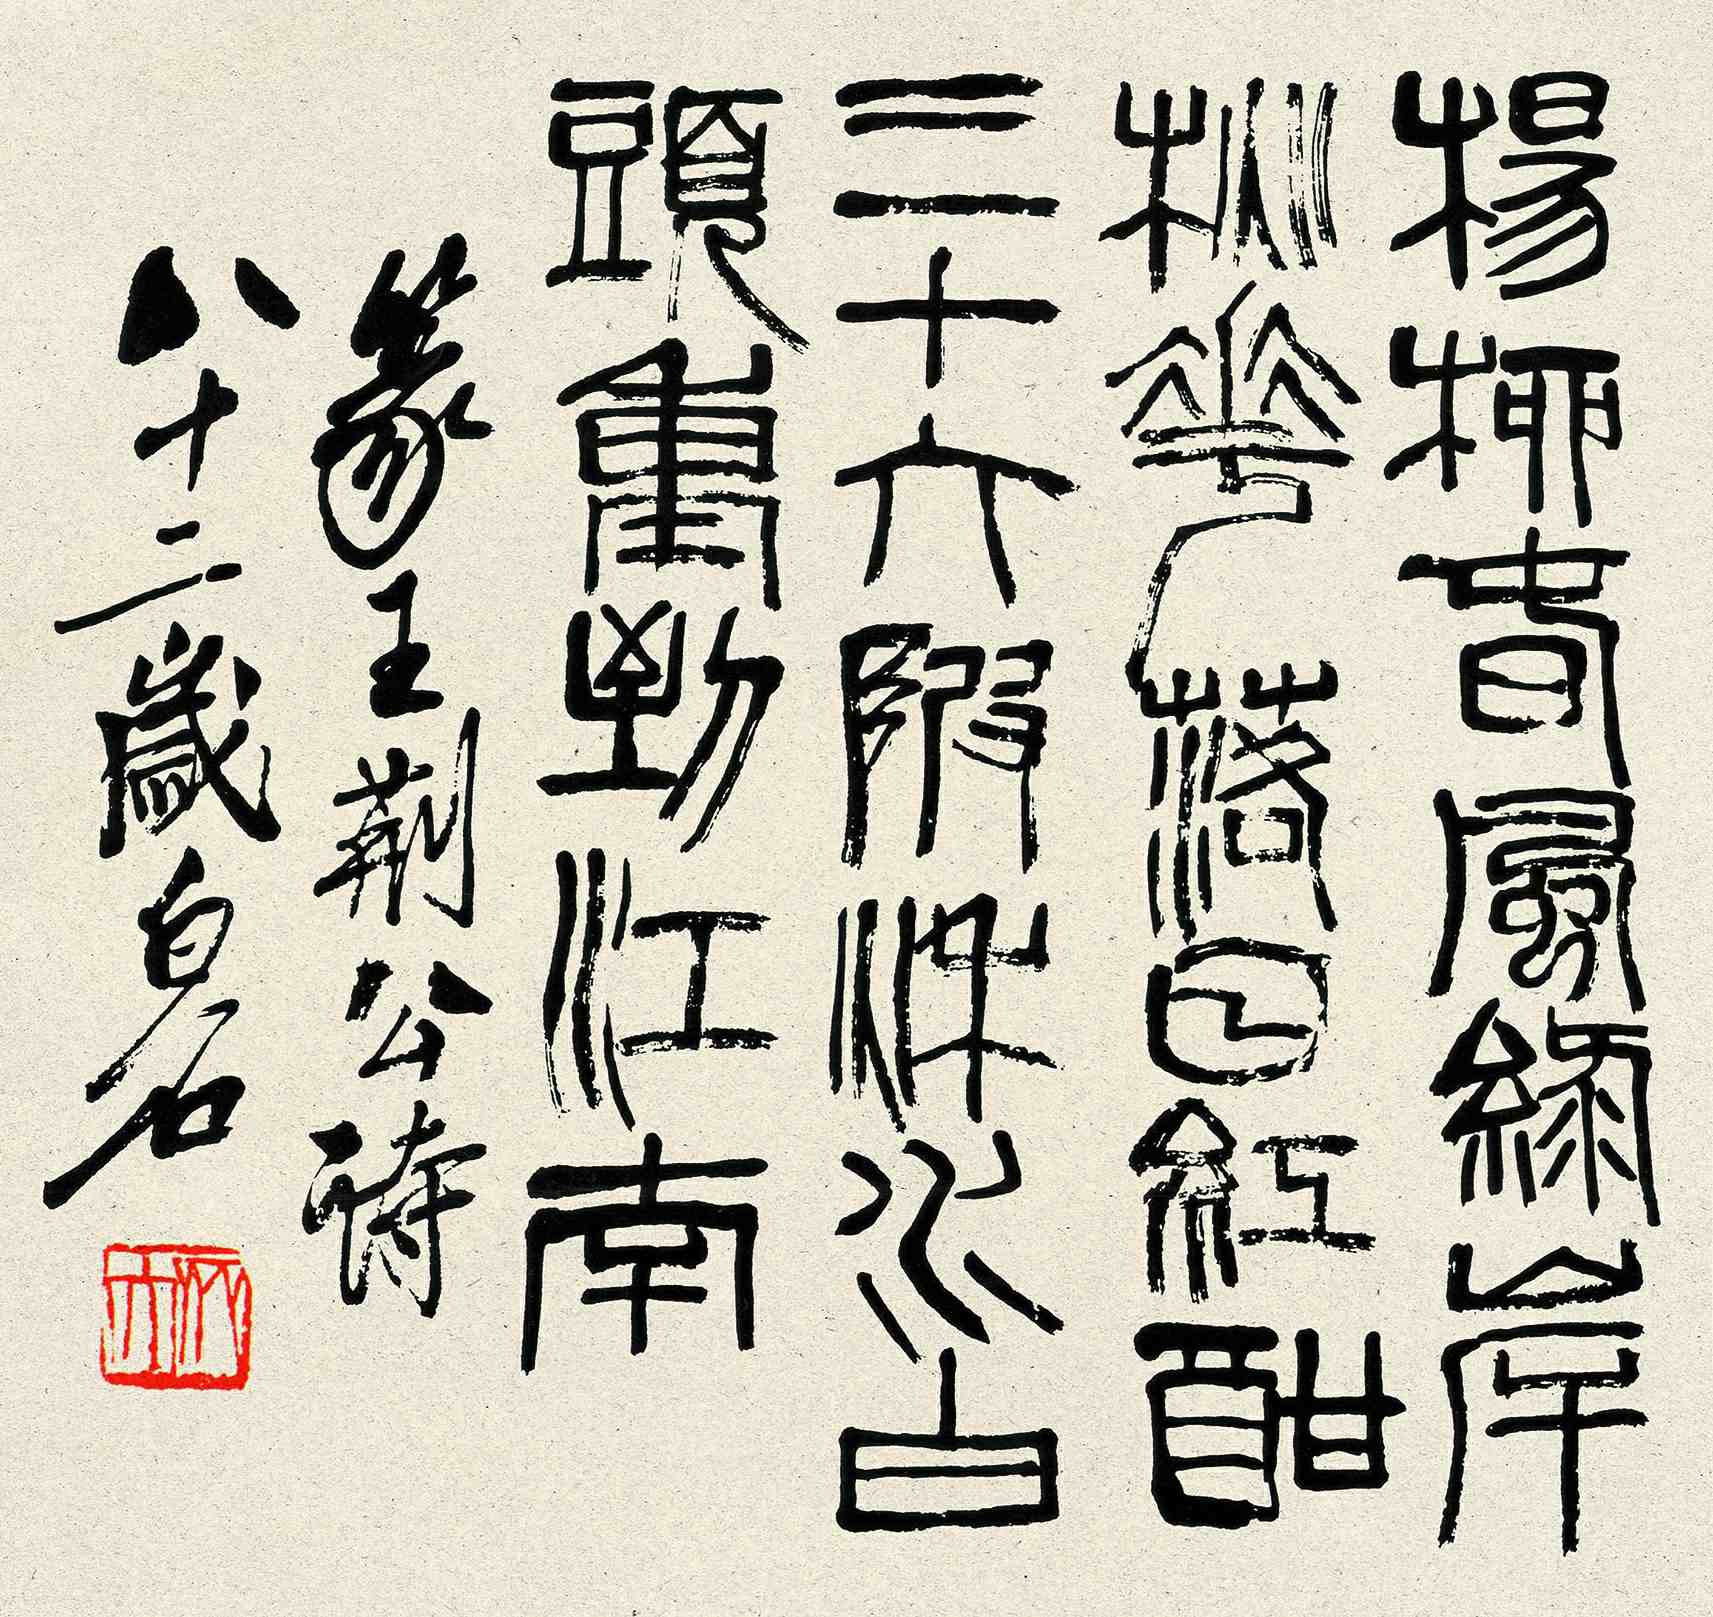 楊柳春風綠岸
桃花落日紅酣
三十六陂水白
頭重到江南
篆王荊公詩
八十二歲白石